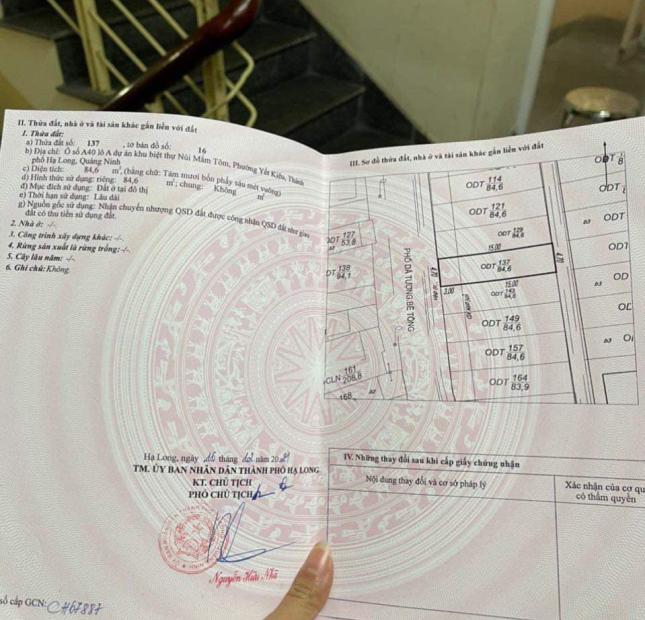 II. Thửa đất, nhà ở và tài sản khác gắn liền với đất
1. Thửa đất:
a) Thửa đất số: 137 , tờ bản đồ số: 16
b) Địa chỉ: Ô số A40 lô A dự án khu biệt thự Núi Mắm Tôm, Phường Yết Kiêu, Thành
phố Hạ Long, Quảng Ninh
c) Diện tích: 84,6 m², (bằng chữ: Tám mươi bốn phẩy sáu mét vuông)
d) Hình thức sử dụng: riêng: 84,6 m²; chung: Không m²
đ) Mục đích sử dụng: Đất ở tại đô thị
e) Thời hạn sử dụng: Lâu dài
g) Nguồn gốc sử dụng: Nhận chuyển nhượng QSD đất được công nhận QSD đất như giao
đất có thu tiền sử dụng đất.
2. Nhà ở: -/-
3. Công trình xây dựng khác: -/-
4. Rừng sản xuất là rừng trồng: -/-
5. Cây lâu năm: -/-
6. Ghi chú: Không
Hạ Long, ngày tháng năm 20
TM. ỦY BAN NHÂN DÂN THÀNH PHỐ HẠ LONG
KT. CHỦ TỊCH
PHÓ CHỦ TỊCH
Nguyễn Hữu Nhã
số cấp GCN: CH67887
III. Sơ đồ thửa đất, nhà ở và tài sản khác gắn liền với đất
ODT 114
84,6
ODT 121
84,6
ODT 129
84,6
15.00
ODT 137
84,6
15.00
ODT 143
84,6
ODT 149
84,6
ODT 157
84,6
ODT 164
83,9
ODT 127
53,8
DT 138
84,1
161
CLN 208,8
168
PHỐ DÃ TƯỢNG BÊ TÔNG
4.70
3.00
4.70
ODT 8
ODT
ODT
ODT
OD
IV. Những thay đổi sau khi cấp giấy chứng nhận
Nội dung thay đổi và cơ sở pháp lý
Xác nhận của cơ qu
có thẩm quyền